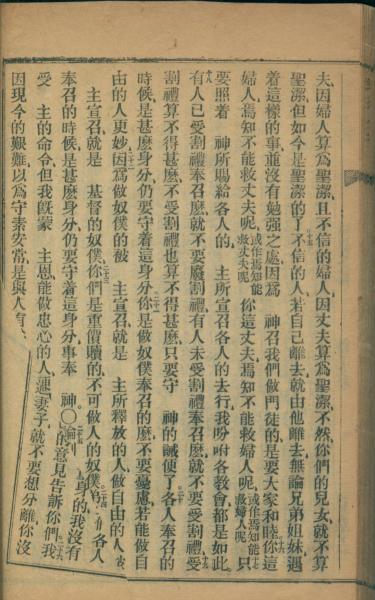 夫、因婦人算爲聖潔、且不信的婦人、因丈夫算爲聖潔、不然、你們的兒女、就不算
聖潔、但如今是聖潔的了、不信的人、若自己離去、就由他離去、無論兄弟姐妹、遇
着這樣的事、並沒有勉强之處、因爲 神召我們做門徒的、是要大家和睦、你這
婦人、焉知不能救丈夫呢、或作焉知能救丈夫呢 你這丈夫、焉知不能救婦人呢、或作焉知能救婦人呢 十七 只
要照着 神所賜給各人的、 主所宣召各人的去行、我吩咐各教會都是如此、
十八 有人已受割禮奉召麽、就不要廢割禮、有人未受割禮奉召麽、就不要受割禮、十九 受
割禮算不得甚麽、不受割禮也算不得甚麽、只要守 神的誡便了、二十 各人奉召的
時候、是甚麽身分、仍要守着這身分、你是做奴僕奉召的麽、不要憂慮、若能做自
由的人更妙、因爲做奴僕的被 主宣召、就是 主所釋放的人、做自由的人
主宣召、就是 基督的奴僕、你們是重價贖的、不可做人的奴僕、各人
奉召的時候、是甚麽身分、仍要守着這身分、事奉 神、〇 身的、我沒有
受 主的命令、但我旣蒙 主恩、能做忠心的人、 意見告訴你們、我
因現今的艱難、以爲守素安常、是與人有 連妻子、就不要想分離、你沒